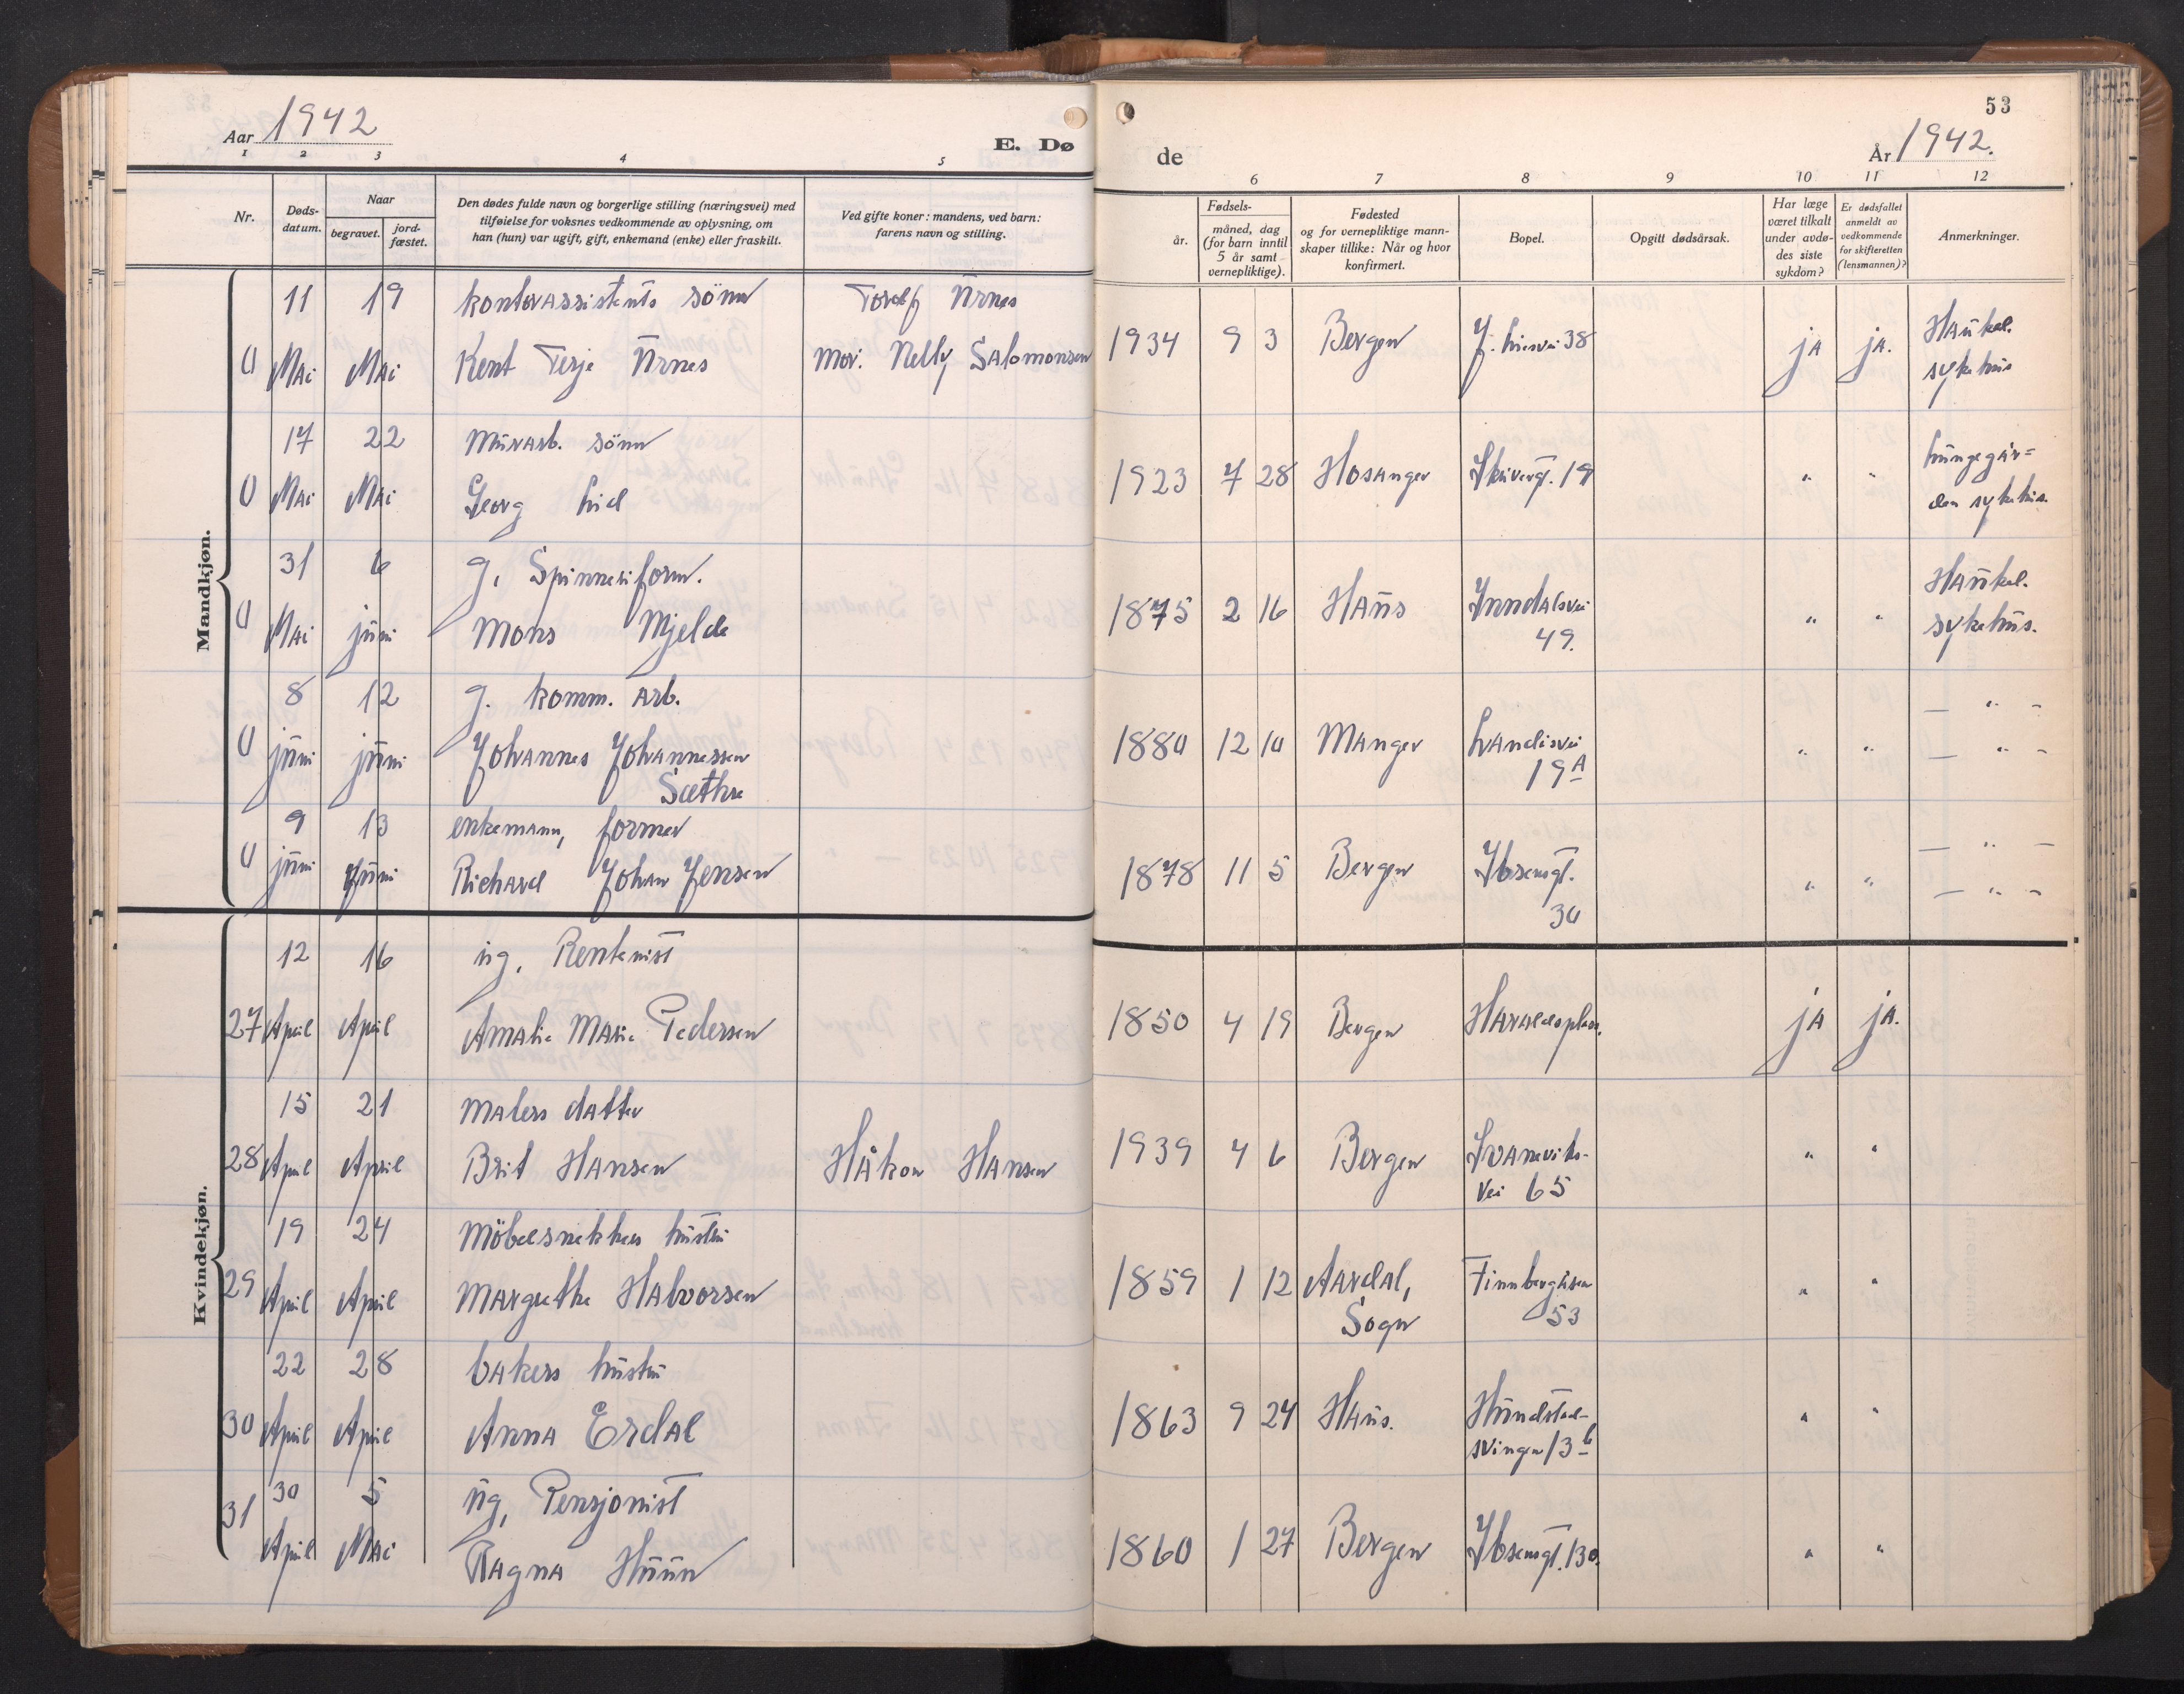 Aar 1942
E. Dø
1 2 3 4 5
Nr.
Døds-
datum.
Naar
begravet.
jord-
fæstet.
Den dødes fulde navn og borgerlige stilling (næringsvei) med
tilføielse for voksnes vedkommende av oplysning, om
han (hun) var ugift, gift, enkemand (enke) eller fraskilt.
Ved gifte koner: mandens, ved barn:
farens navn og stilling.
Mandkjøn.
11 19 kontorassistents sönn Torolf Årnes
U Mai Mai Kent Terje Årnes Mor: Nelly Salomonsen
17 22 Murarb. sönn
U Mai Mai Georg Lid
31 6 g. Spinneriform.
U Mai juni Mons Mjelde
8 12 g. komm. arb.
U juni juni Johannes Johannessen
Sæthre
9 13 enkemann, former
U juni juni Richard Johan Jensen
Kvindekjøn.
12 16 ug. Rentenist
27 April April Amalie Marie Pedersen
15 21 Malers datter
28 April April Brit Hansen Håkon Hansen
19 24 Möbelsnekkers hustru
29 April April Margrethe Halvorsen
22 28 bakers hustru
30 April April Anna Erdal
30 5 ug, Pensjonist
31 April Mai Ragna Huun
53
de
År 1942.
6 7 8 9 10 11 12
Fødsels-
år.
måned, dag
(for barn inntil
5 år samt
vernepliktige).
Fødested
og for vernepliktige mann-
skaper tillike: Når og hvor
konfirmert.
Bopel.
Opgitt dødsårsak.
Har læge
været tilkalt
under avdø-
des siste
sykdom?
Er dødsfallet
anmeldt av
vedkommende
for skifteretten
(lensmannen)?
Anmerkninger.
1934 9 3 Bergen J. Liesvei 38 ja ja. Haukel.
sykehus
1923 7 28 Hosanger Skivergt. 19 " " Lungegår=
den sykehus.
1875 2 16 Haus Inndalsvei
49. " " Haukel.
sykehus.
1880 12 10 Manger Landåsvei
19A " " — " —
— " —
1878 11 5 Bergen Ibsensgt.
30 " " — " —
— " —
1850 4 19 Bergen Haraldsplass. ja ja.
1939 4 6 Bergen Svaneviks-
vei 65 " "
1859 1 12 Aardal,
Sogn Finnbergåsen
53 " "
1863 9 24 Haus. Hundstad-
svingen 13b " "
1860 1 27 Bergen Ibsensgt. 130. " "